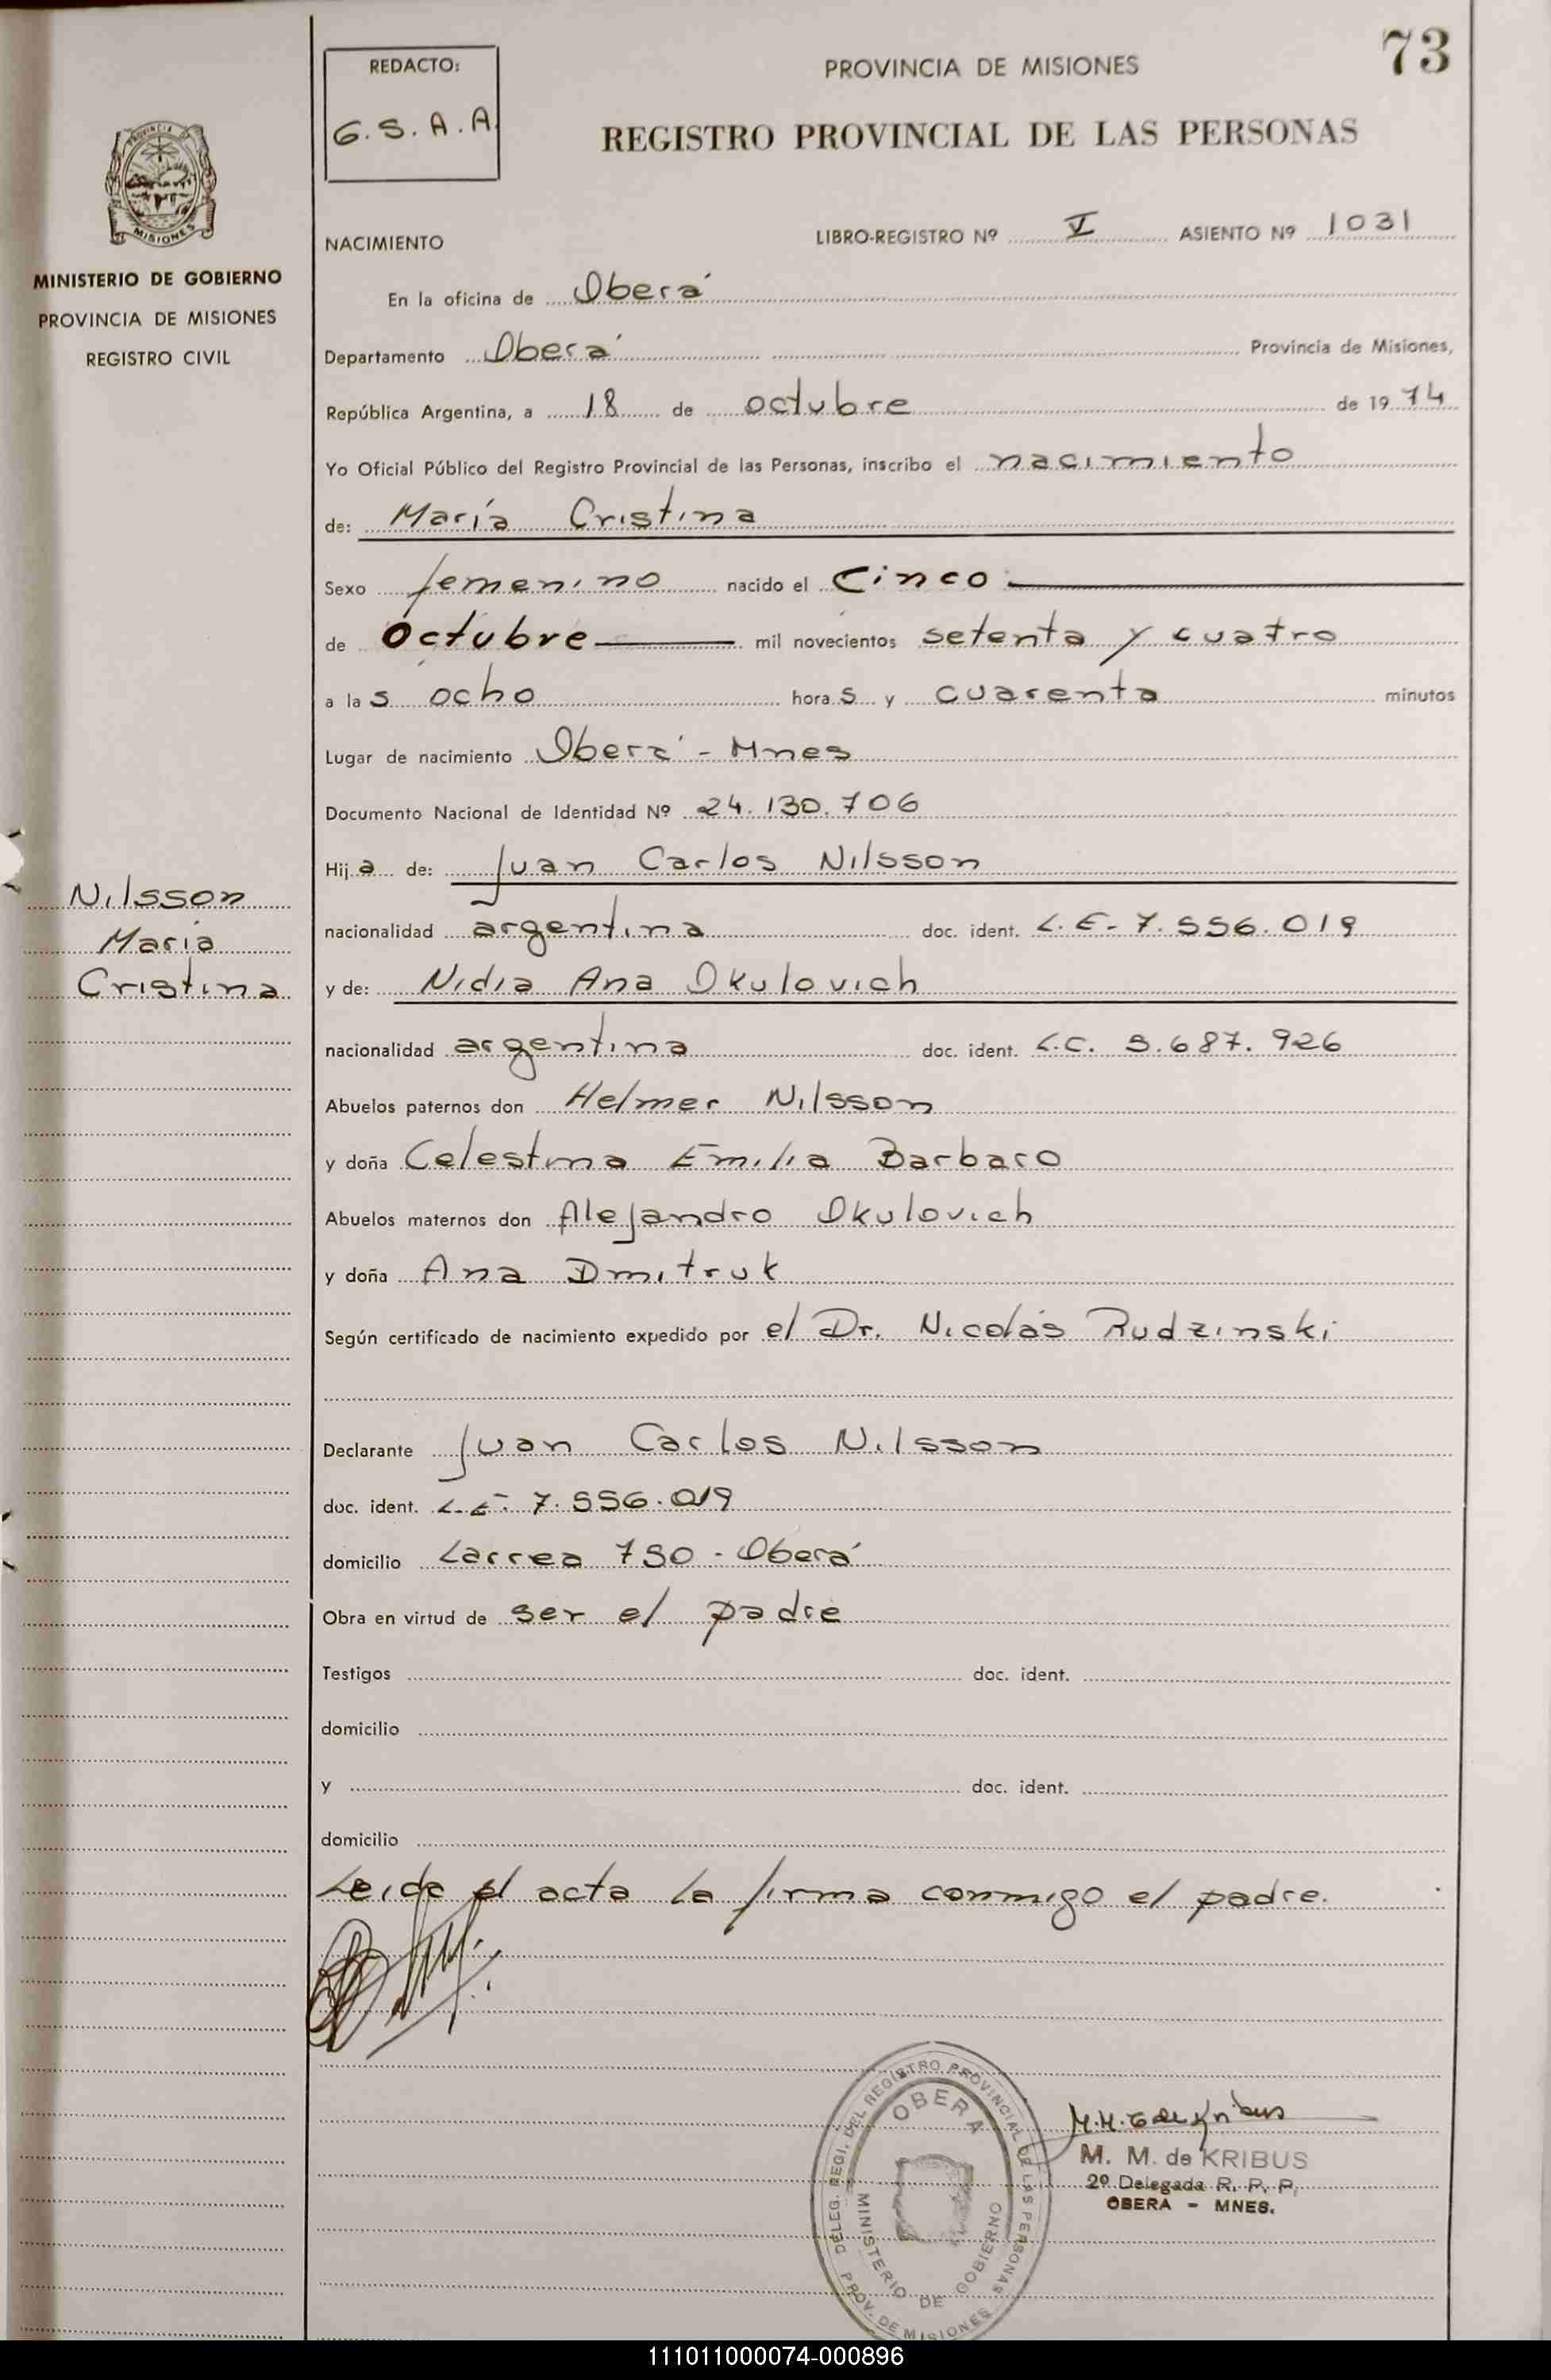 73
REDACTO:
G. S. A. A
PROVINCIA DE MISIONES
REGISTRO PROVINCIAL DE LAS PERSONAS
MISIONES
MINISTERIO DE GOBIERNO
PROVINCIA DE MISIONES
REGISTRO CIVIL
NACIMIENTO
LIBRO-REGISTRO Nº V ASIENTO Nº 1031
En la oficina de Oberá
Departamento Oberá Provincia de Misiones,
República Argentina, a 18 de octubre de 1974
Yo Oficial Público del Registro Provincial de las Personas, inscribo el nacimiento
de: María Cristina
Sexo femenino nacido el Cinco
de Octubre mil novecientos setenta y cuatro
a las ocho horas y cuarenta minutos
Lugar de nacimiento Oberá - Mnes
Documento Nacional de Identidad Nº 24.130.706
Hija de: Juan Carlos Nilsson
Nilsson
Maria
Cristina
nacionalidad argentina doc. ident. L.E- 7.556.019
y de: Nidia Ana Okulovich
nacionalidad argentina doc. ident. L.C. 5.687.926
Abuelos paternos don Helmer Nilsson
y doña Celestina Emilia Barbaro
Abuelos maternos don Alejandro Okulovich
y doña Ana Dmitruk
Según certificado de nacimiento expedido por el Dr. Nicolás Rudzinski
Declarante Juan Carlos Nilsson
doc. ident. L.E- 7.556.019
domicilio Larrea 750 - Oberá
Obra en virtud de ser el padre
Testigos doc. ident.
domicilio
y doc. ident.
domicilio
Leida el acta la firma conmigo el padre.
DELEG. REGI. DEL REGISTRO PROVINCIAL DE LAS PERSONAS
OBERA
MINISTERIO DE GOBIERNO
PROV. DE MISIONES
M. M. de KRIBUS
2º Delegada R. P. P.
OBERA - MNES.
111011000074-000896